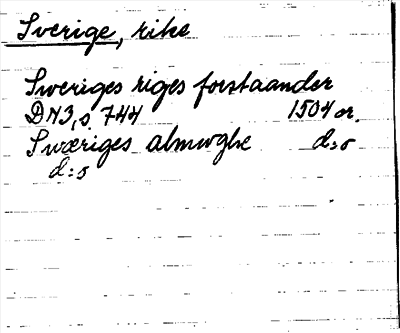 Sverige, rike
Sweriges riges forstaander
DN3, s. 744 1504 or.
Swæriges almoghe d:o
d:o